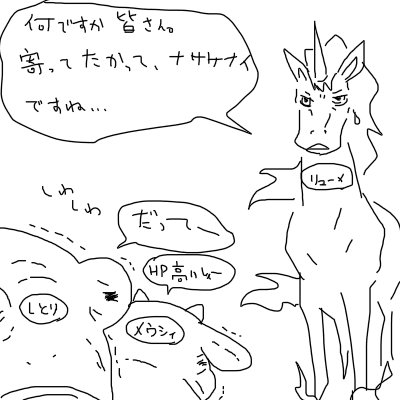 何ですか 皆さん。
寄ってたかって、ナサケナイ
ですね…
リューメ
しわ
しわ
だってー
HP高いしー
しとり
メウシィ